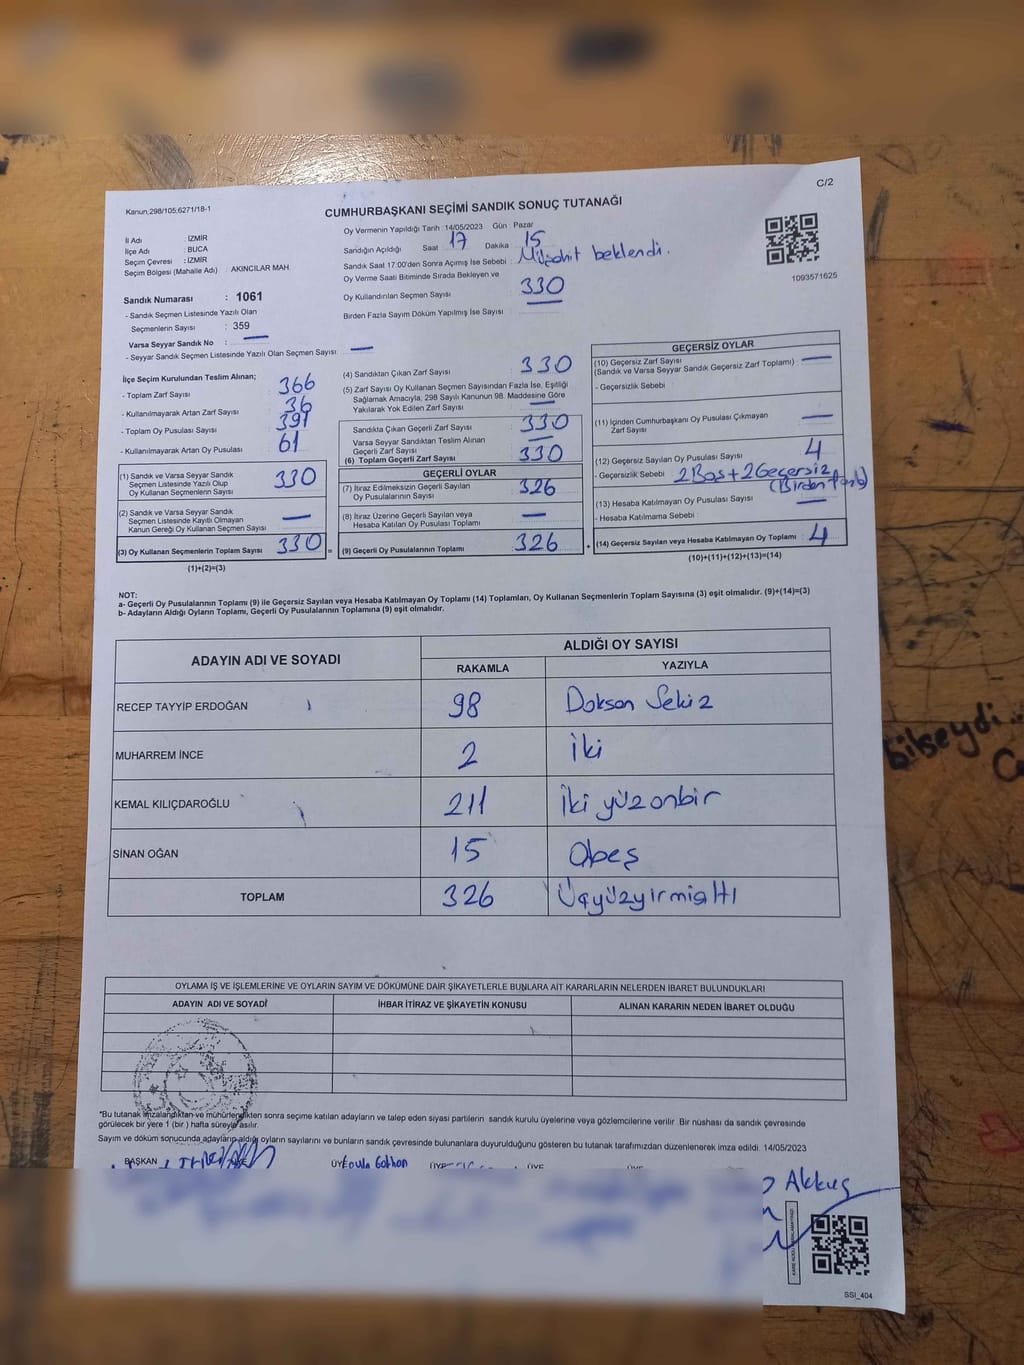 C/2
Kanun,298/105;6271/18-1
CUMHURBAŞKANI SEÇİMİ SANDIK SONUÇ TUTANAĞI
İl Adı : İZMİR
İlçe Adı : BUCA
Seçim Çevresi : İZMİR
Seçim Bölgesi (Mahalle Adı) : AKINCILAR MAH
Sandık Numarası : 1061
- Sandık Seçmen Listesinde Yazılı Olan
Seçmenlerin Sayısı : 359
Varsa Seyyar Sandık No : —
- Seyyar Sandık Seçmen Listesinde Yazılı Olan Seçmen Sayısı : —
Oy Vermenin Yapıldığı Tarih : 14/05/2023 Gün Pazar
Sandığın Açıldığı Saat : 17 Dakika 15
Sandık Saat 17:00'den Sonra Açımış İse Sebebi : Müşahit beklendi.
Oy Verme Saati Bitiminde Sırada Bekleyen ve
Oy Kullandırılan Seçmen Sayısı : 330
Birden Fazla Sayım Döküm Yapılmış İse Sayısı :
1093571625
İlçe Seçim Kurulundan Teslim Alınan;
- Toplam Zarf Sayısı : 366
- Kullanılmayarak Artan Zarf Sayısı : 36
- Toplam Oy Pusulası Sayısı : 391
- Kullanılmayarak Artan Oy Pusulası : 61
(1) Sandık ve Varsa Seyyar Sandık
Seçmen Listesinde Yazılı Olup
Oy Kullanan Seçmenlerin Sayısı 330
(2) Sandık ve Varsa Seyyar Sandık
Seçmen Listesinde Kayıtlı Olmayan
Kanun Gereği Oy Kullanan Seçmen Sayısı —
(3) Oy Kullanan Seçmenlerin Toplam Sayısı 330 =
(1)+(2)=(3)
(4) Sandıktan Çıkan Zarf Sayısı : 330
(5) Zarf Sayısı Oy Kullanan Seçmen Sayısından Fazla İse, Eşitliği
Sağlamak Amacıyla, 298 Sayılı Kanunun 98. Maddesine Göre
Yakılarak Yok Edilen Zarf Sayısı : —
Sandıkta Çıkan Geçerli Zarf Sayısı : 330
Varsa Seyyar Sandıktan Teslim Alınan
Geçerli Zarf Sayısı : —
(6) Toplam Geçerli Zarf Sayısı : 330
GEÇERLİ OYLAR
(7) İtiraz Edilmeksizin Geçerli Sayılan
Oy Pusulasının Sayısı 326
(8) İtiraz Üzerine Geçerli Sayılan veya
Hesaba Katılan Oy Pusulası Toplamı —
(9) Geçerli Oy Pusulalarının Toplamı 326 +
GEÇERSİZ OYLAR
(10) Geçersiz Zarf Sayısı
(Sandık ve Varsa Seyyar Sandık Geçersiz Zarf Toplamı) : —
- Geçersizlik Sebebi
(11) İçinden Cumhurbaşkanı Oy Pusulası Çıkmayan
Zarf Sayısı : —
(12) Geçersiz Sayılan Oy Pusulası Sayısı : 4
- Geçersizlik Sebebi 2 Boş + 2 Geçersiz
(13) Hesaba Katılmayan Oy Pusulası Sayısı : —
- Hesaba Katılmama Sebebi :
(14) Geçersiz Sayılan veya Hesaba Katılmayan Oy Toplamı : 4
(10)+(11)+(12)+(13)=(14)
NOT:
a- Geçerli Oy Pusulalarının Toplamı (9) ile Geçersiz Sayılan veya Hesaba Katılmayan Oy Toplamı (14) Toplamları, Oy Kullanan Seçmenlerin Toplam Sayısına (3) eşit olmalıdır. (9)+(14)=(3)
b- Adayların Aldığı Oyların Toplamı, Geçerli Oy Pusulalarının Toplamına (9) eşit olmalıdır.
ADAYIN ADI VE SOYADI ALDIĞI OY SAYISI
RAKAMLA YAZIYLA
RECEP TAYYİP ERDOĞAN 98 Doksan Sekiz
MUHARREM İNCE 2 İki
KEMAL KILIÇDAROĞLU 211 İki yüz onbir
SİNAN OĞAN 15 Obeş
TOPLAM 326 Üçyüzyirmialtı
OYLAMA İŞ VE İŞLEMLERİNE VE OYLARIN SAYIM VE DÖKÜMÜNE DAİR ŞİKAYETLERLE BUNLARA AİT KARARLARIN NELERDEN İBARET BULUNDUKLARI
ADAYIN ADI VE SOYADI İHBAR İTİRAZ VE ŞİKAYETİN KONUSU ALINAN KARARIN NEDEN İBARET OLDUĞU
*Bu tutanak imzalandıktan ve mühürlendikten sonra seçime katılan adayların ve talep eden siyasi partilerin sandık kurulu üyelerine veya gözlemcilerine verilir. Bir nüshası da sandık çevresinde
görülecek bir yere 1 (bir ) hafta süreyle asılır.
Sayım ve döküm sonucunda adayların aldığı oyların sayılarını ve bunların sandık çevresinde bulunanlara duyurulduğunu gösteren bu tutanak tarafımızdan düzenlenerek imza edildi. 14/05/2023
BAŞKAN ÜYE ÜYE ÜYE
Akkuş
SSI_404
bilseydi..